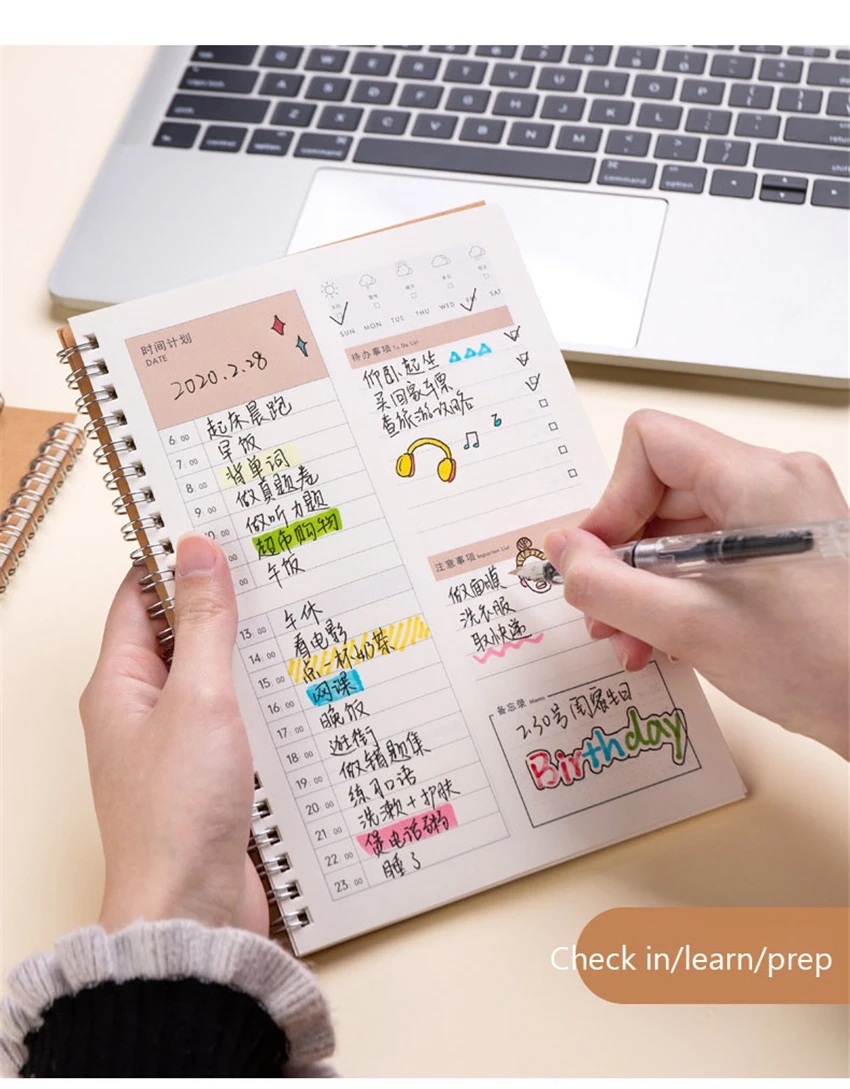 时间计划
DATE
2020.2.28
SUN MON TUE THU WED FRI SAT
待办事项 To Do List
仰卧起坐
买回家车票
查旅游攻略
6:00 起床晨跑
7:00 早饭
8:00 背单词
9:00 做真题卷
10:00 做听力题
:00 超市购物
:00 午饭
13:00 午休
14:00 看电影
15:00 点一杯奶茶
16:00 网课
17:00 晚饭
18:00 逛街
19:00 做错题集
20:00 练习口语
21:00 洗漱+护肤
22:00 煲电话粥
23:00 睡了
注意事项 Important List
做面膜
洗衣服
取快递
备忘录 Memo
2.30号闺蜜生日
Birthday
Check in/learn/prep